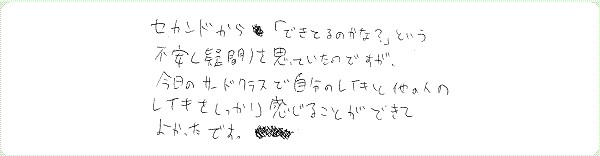 セカンドから「できてるのかな?」という
不安(疑問)を思っていたのですが、
今日のサードクラスで自分のレイキと他の人の
レイキをしっかり感じることができて
よかったです。